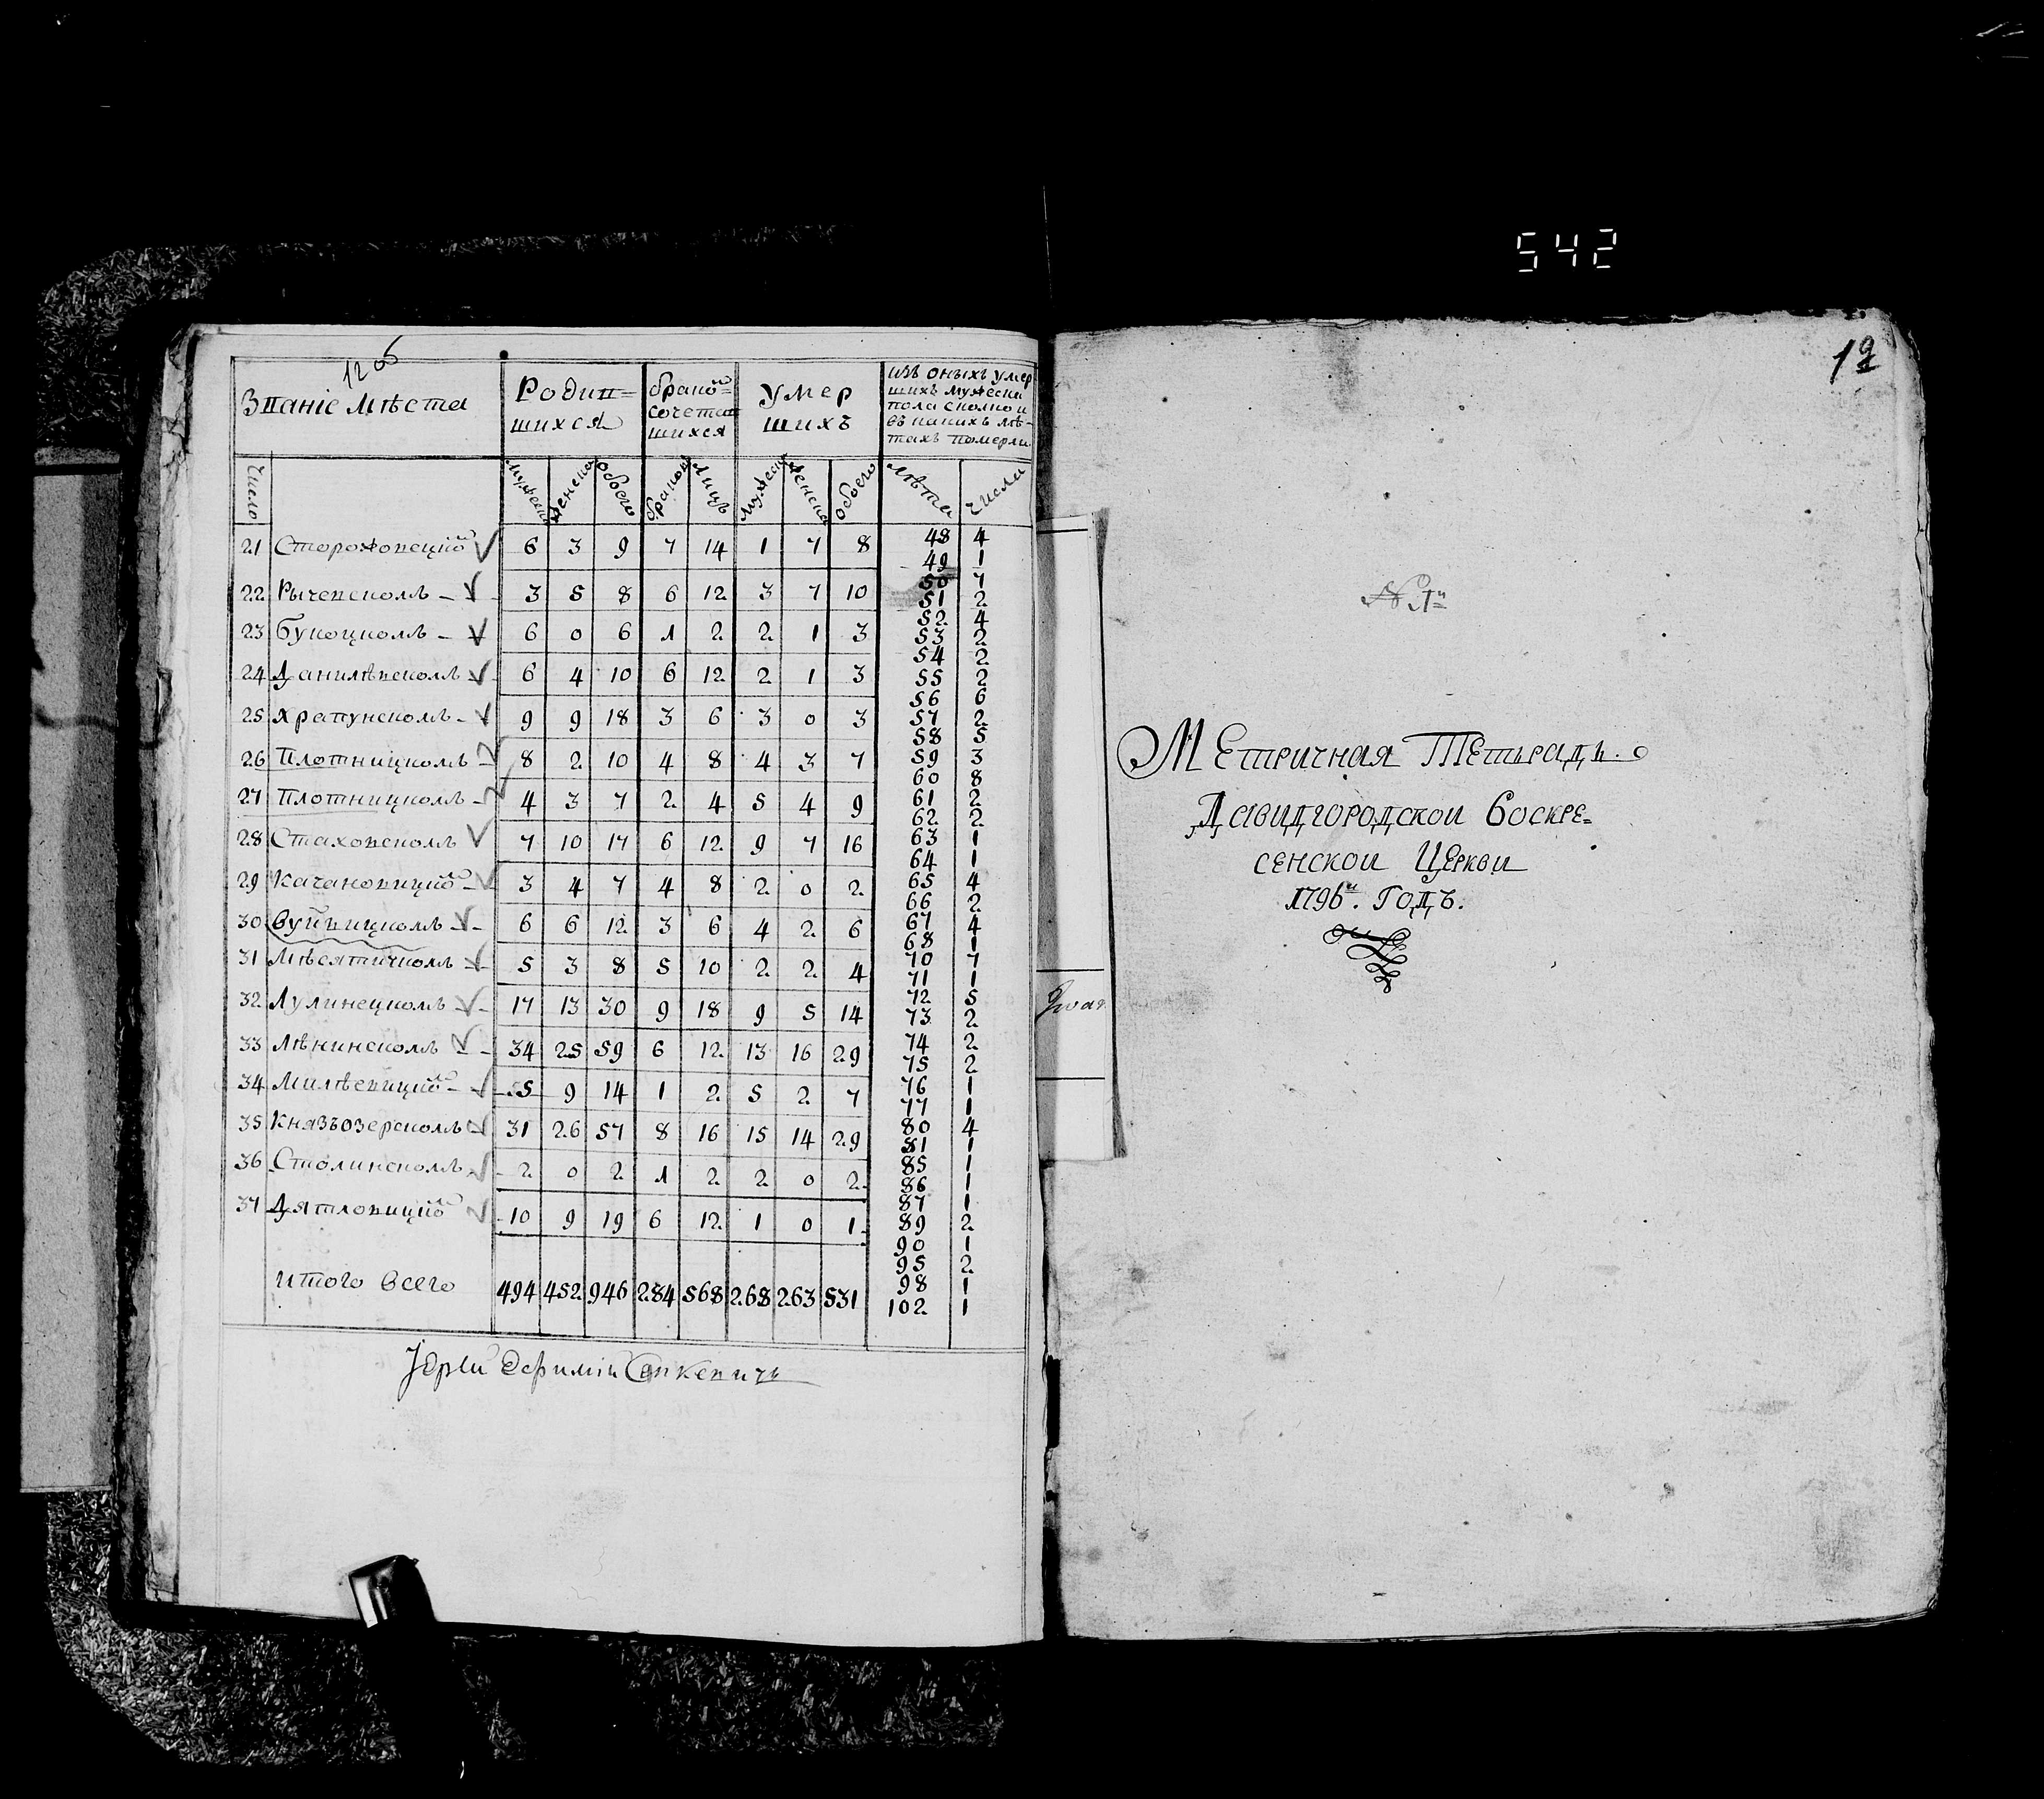 542
12 об
Званіе мѣста | Родив= | брако= | Умер | изъ оныхъ умер
шихся | сочета | шихъ | шихъ мужеска
шихся | пола сколко и
въ какихъ лѣ-
тахъ померли
Число | мужеска | женска | обоего | браков | лицъ | мужеска | женска | обоего | лѣта | числа
21 Стороживецкой 6 3 9 7 14 1 7 8
22 Рычевскомъ 3 5 8 6 12 3 7 10
23 Букоцкомъ 6 0 6 1 2 2 1 3
24 Данилѣвскомъ 6 4 10 6 12 2 1 3
25 Храпунскомъ 9 9 18 3 6 3 0 3
26 Плотницкомъ 8 2 10 4 8 4 3 7
27 Плотницкомъ 4 3 7 2 4 5 4 9
28 Стаховскомъ 7 10 17 6 12 9 7 16
29 Качановицко 3 4 7 4 8 2 0 2
30 Вуйвицкомъ 6 6 12 3 6 4 2 6
31 Мѣсятичкомъ 5 3 8 5 10 2 2 4
32 Лулинецкомъ 17 13 30 9 18 9 5 14
33 Лѣнинскомъ 34 25 59 6 12 13 16 29
34 Милѣвицко 5 9 14 1 2 5 2 7
35 Князьозерскомъ 31 26 57 8 16 15 14 29
36 Столинскомъ 2 0 2 1 2 2 0 2
37 Дятловицко 10 9 19 6 12 1 0 1
итого всего 494 452 946 284 568 268 263 531
48 4
49 1
50 7
51 2
52 4
53 2
54 2
55 2
56 6
57 2
58 5
59 3
60 8
61 2
62 2
63 1
64 1
65 4
66 2
67 4
68 1
70 7
71 1
72 5
73 2
74 2
75 2
76 1
77 1
80 4
81 1
85 1
86 1
87 1
89 2
90 1
95 2
98 1
102 1
Іерей
№ 1й
Метричная Тетьрадь.
Давидгородской Воскре=
сенской Церкви
1796й. Годъ.